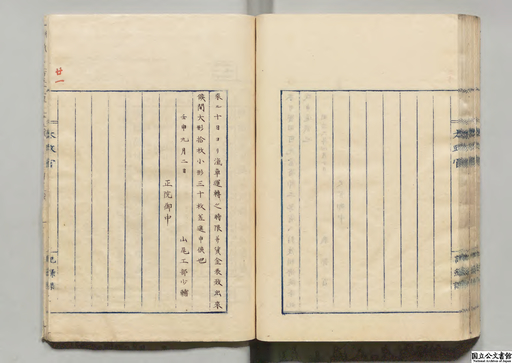 来ル十日ヨリ滊車運轉之時限并賃金表致出来
候間大形拾枚小形三十枚差進申候也
壬申九月二日　山尾工部少輔
正院御中
廿一
太政官
国立公文書館
National Archives of Japan